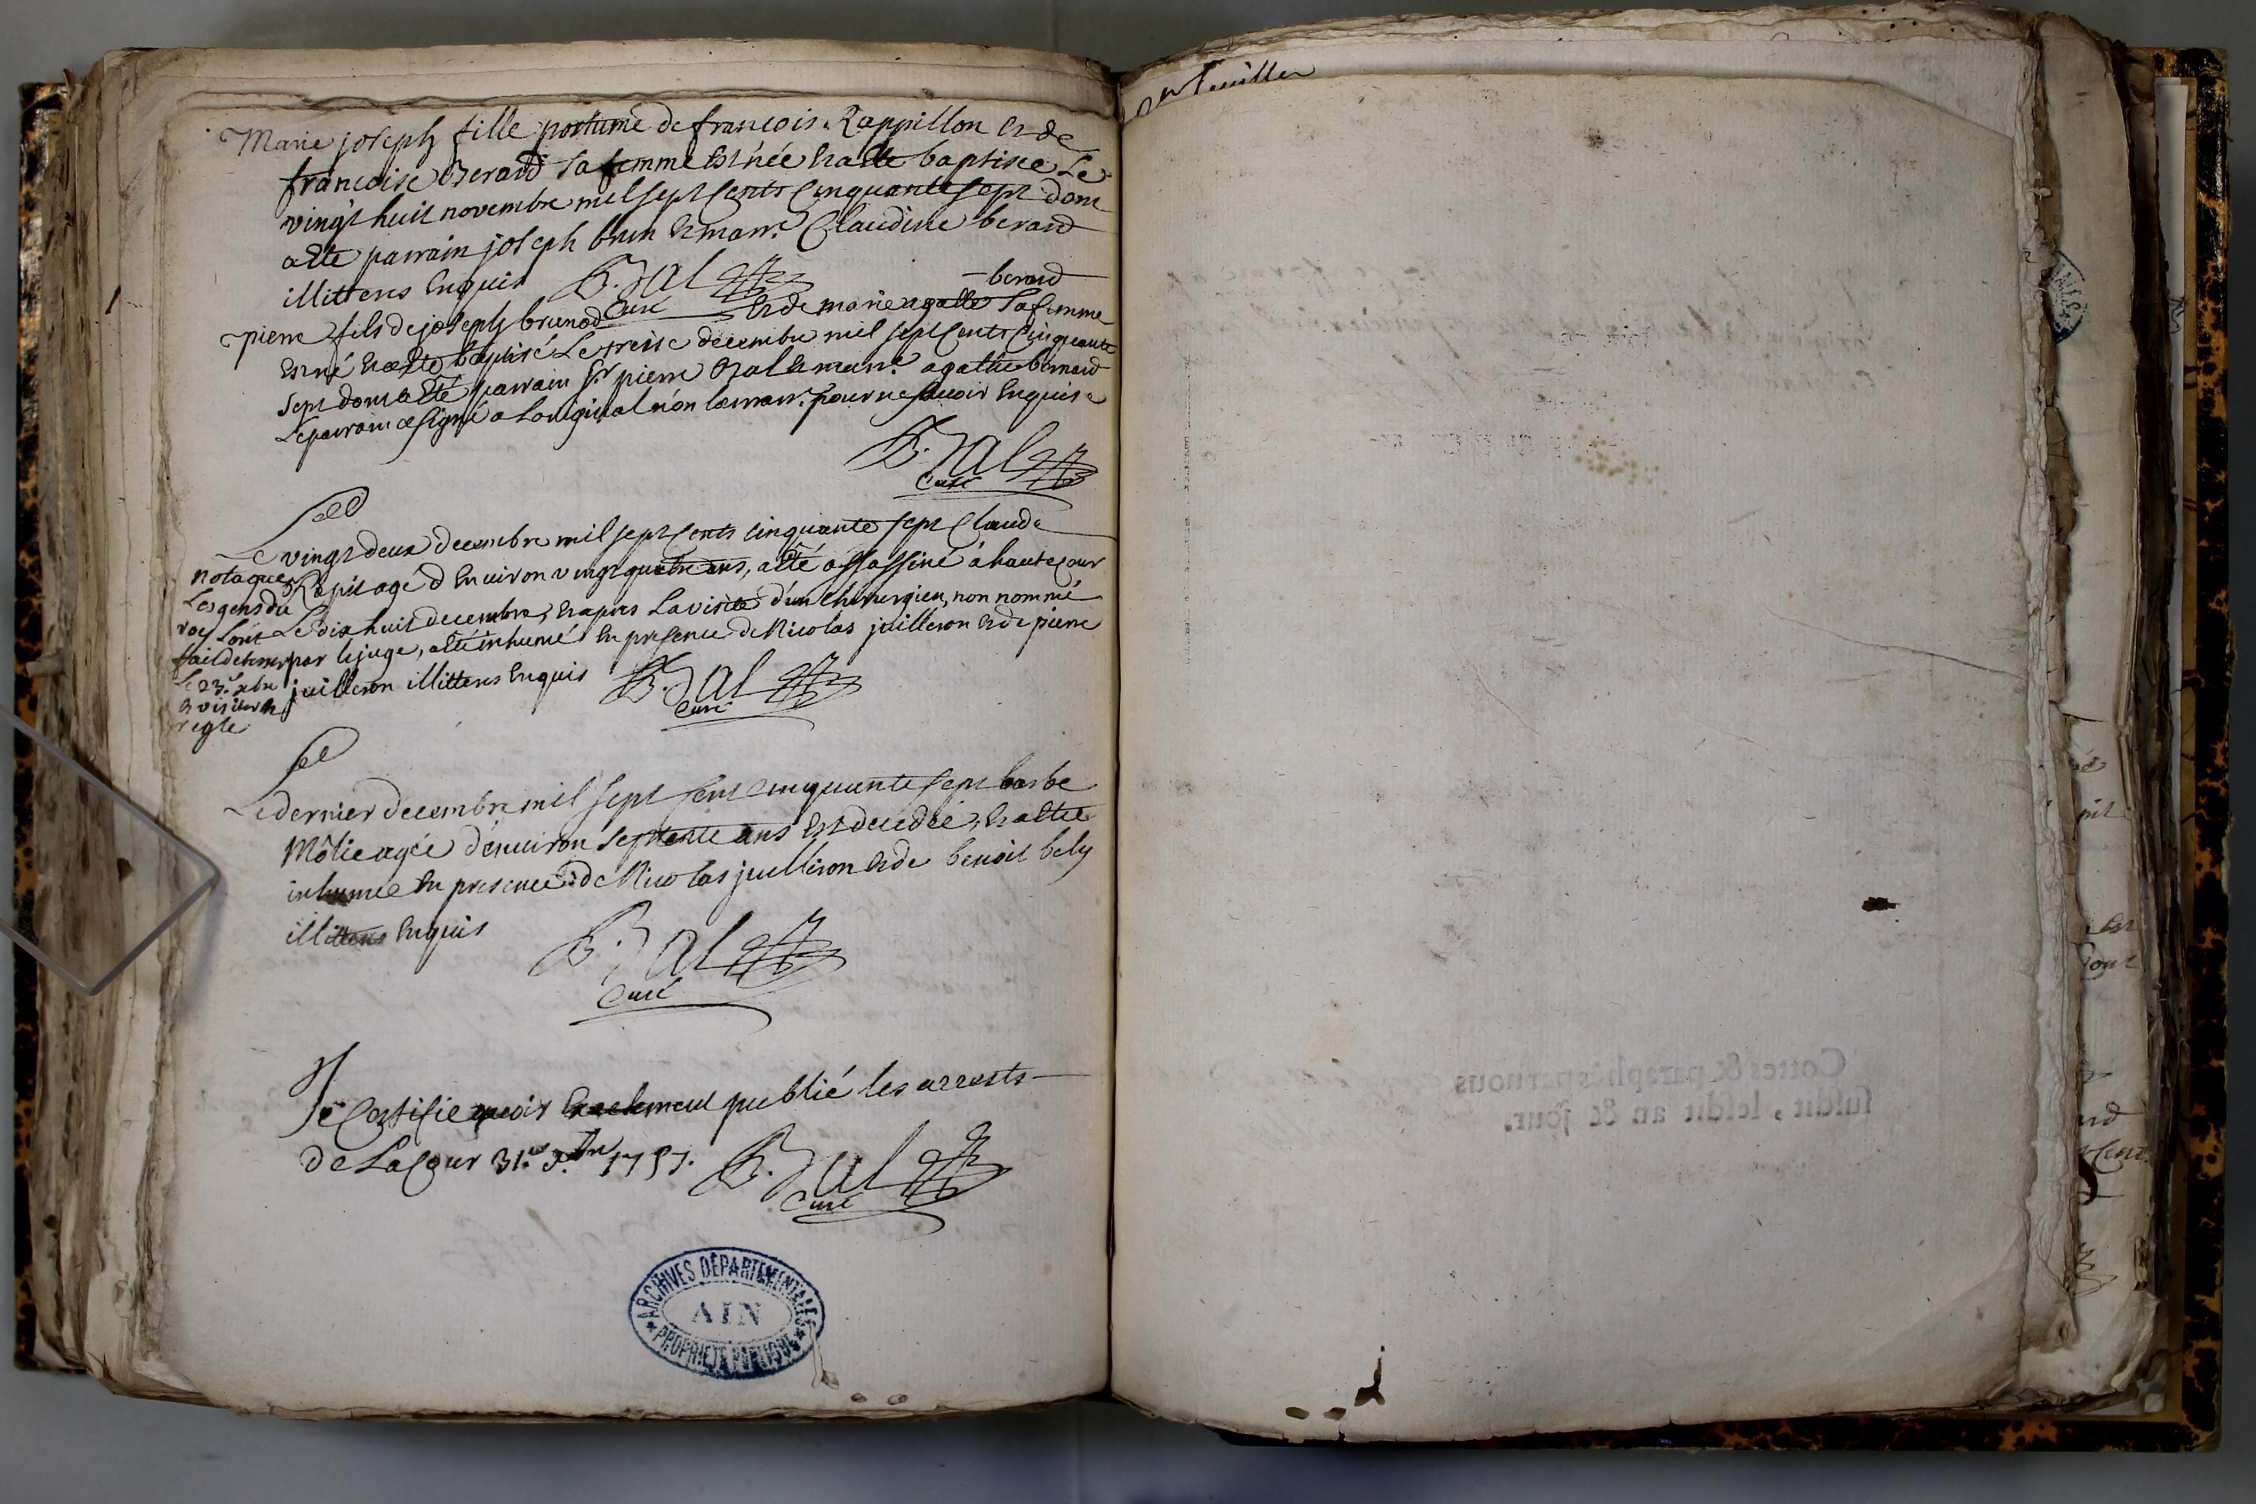 Marie joseph fille postume de francois Rappillon et de
francoise Berard sa femme est née et a été baptisée Le
vingt huit novembre mil sept Cents Cinquante sept dont
a été parrain joseph brun et marr.e Claudine berard
illitterés Enquis B. Dal
Curé
pierre fils de joseph brunod et de marie agathe berard sa femme
est né et a été baptisé Le treise decembre mil sept Cents Cinquante
sept dont a été parrain Sr pierre Dal et marr.e agathe bernard
Le parrain a signé a Loriginal non la marr.e pour ne scavoir Enquise
B. Dal
Curé
Le vingt deux decembre mil sept Cents cinquante sept Claude
agé d'Environ vingt quatre ans, a été assassiné à hautecour
Le dix huit decembre, et apres La visite d'un chirurgien, non nommé
par le juge, a été inhumé En presence de Nicolas juilleron et de pierre
juilleron illitterés Enquis B. Dal
Curé
nota que
Les gens du
roy L'ont
fait deterrer
Le 23.e xbre
et visiter En
regle
Le dernier decembre mil sept Cent Cinquante sept barbe
Môlie agée d'environ septente ans est decedée, et a été
inhumée En presence de Nicolas juilleron et de benoit bely
illitterés Enquis B. Dal
Curé
Je Certifie avoir Exactement publié les arrests
de La Cour 31.e xbre 1757. B. Dal
Curé
ARCHIVES DÉPARTEMENTALES
AIN
PROPRIÉTÉ PUBLIQUE
Cottes & paraphés par nous
susdit, lesdit an & jour.